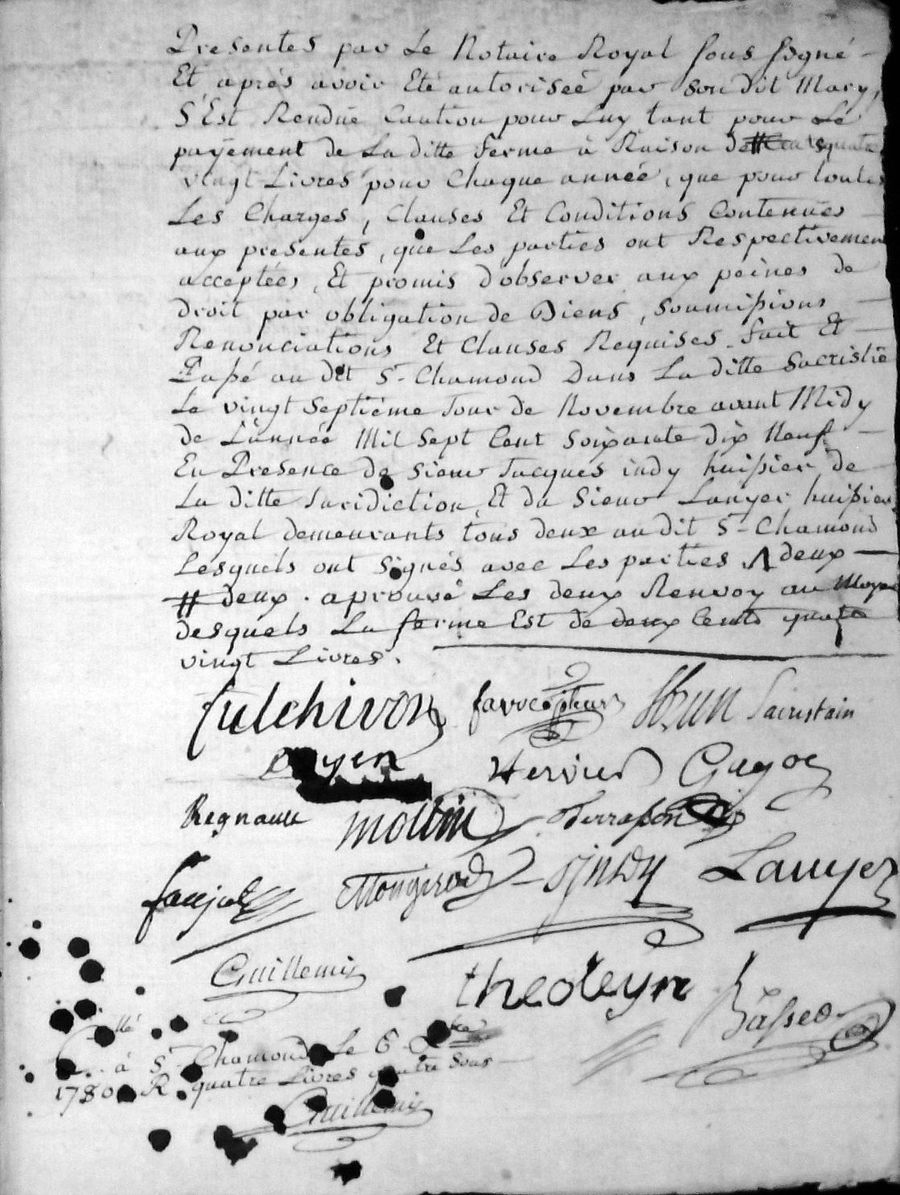 Presentes par Le Notaire Royal sous signé
Et après avoir Eté autorisée par son dit Mary,
S'Est Rendüe Caution pour Luy tant pour Le
payement de La ditte ferme à Raison de # quatre
vingt Livres pour Chaque année, que pour toutes
Les Charges, Clauses Et Conditions Contenues
aux presentes, que Les parties ont Respectivement
acceptées, Et promis d'observer aux peines de
droit par obligation de Biens, soumissions
Renonciations Et Clauses Requises. fait Et
Passé au dit St. Chamond Dans La ditte Sacristie
Le vingt Septième Jour de Novembre avant Midy
de L'année Mil Sept Cent Soixante dix Neuf
En Presence de Sieur Jacques indy huissier de
La ditte Juridiction, Et du Sieur Lanyer huissier
Royal demeurants tous deux au dit St. Chamond
Lesquels ont Signés avec Les parties Λ deux
# deux. aprouvé Les deux Renvoy au Moyen
desquels La ferme Est de deux Cents quatre
vingt Livres.
fulchiron Brun Sacristain
Hervier Gayot
Regnault Terrasson
Mongirod J Indy Lanyer
Guillemin thedeyn
à St. Chamond Le 6
1780 R. quatre Livres quatre sous
Guillemin